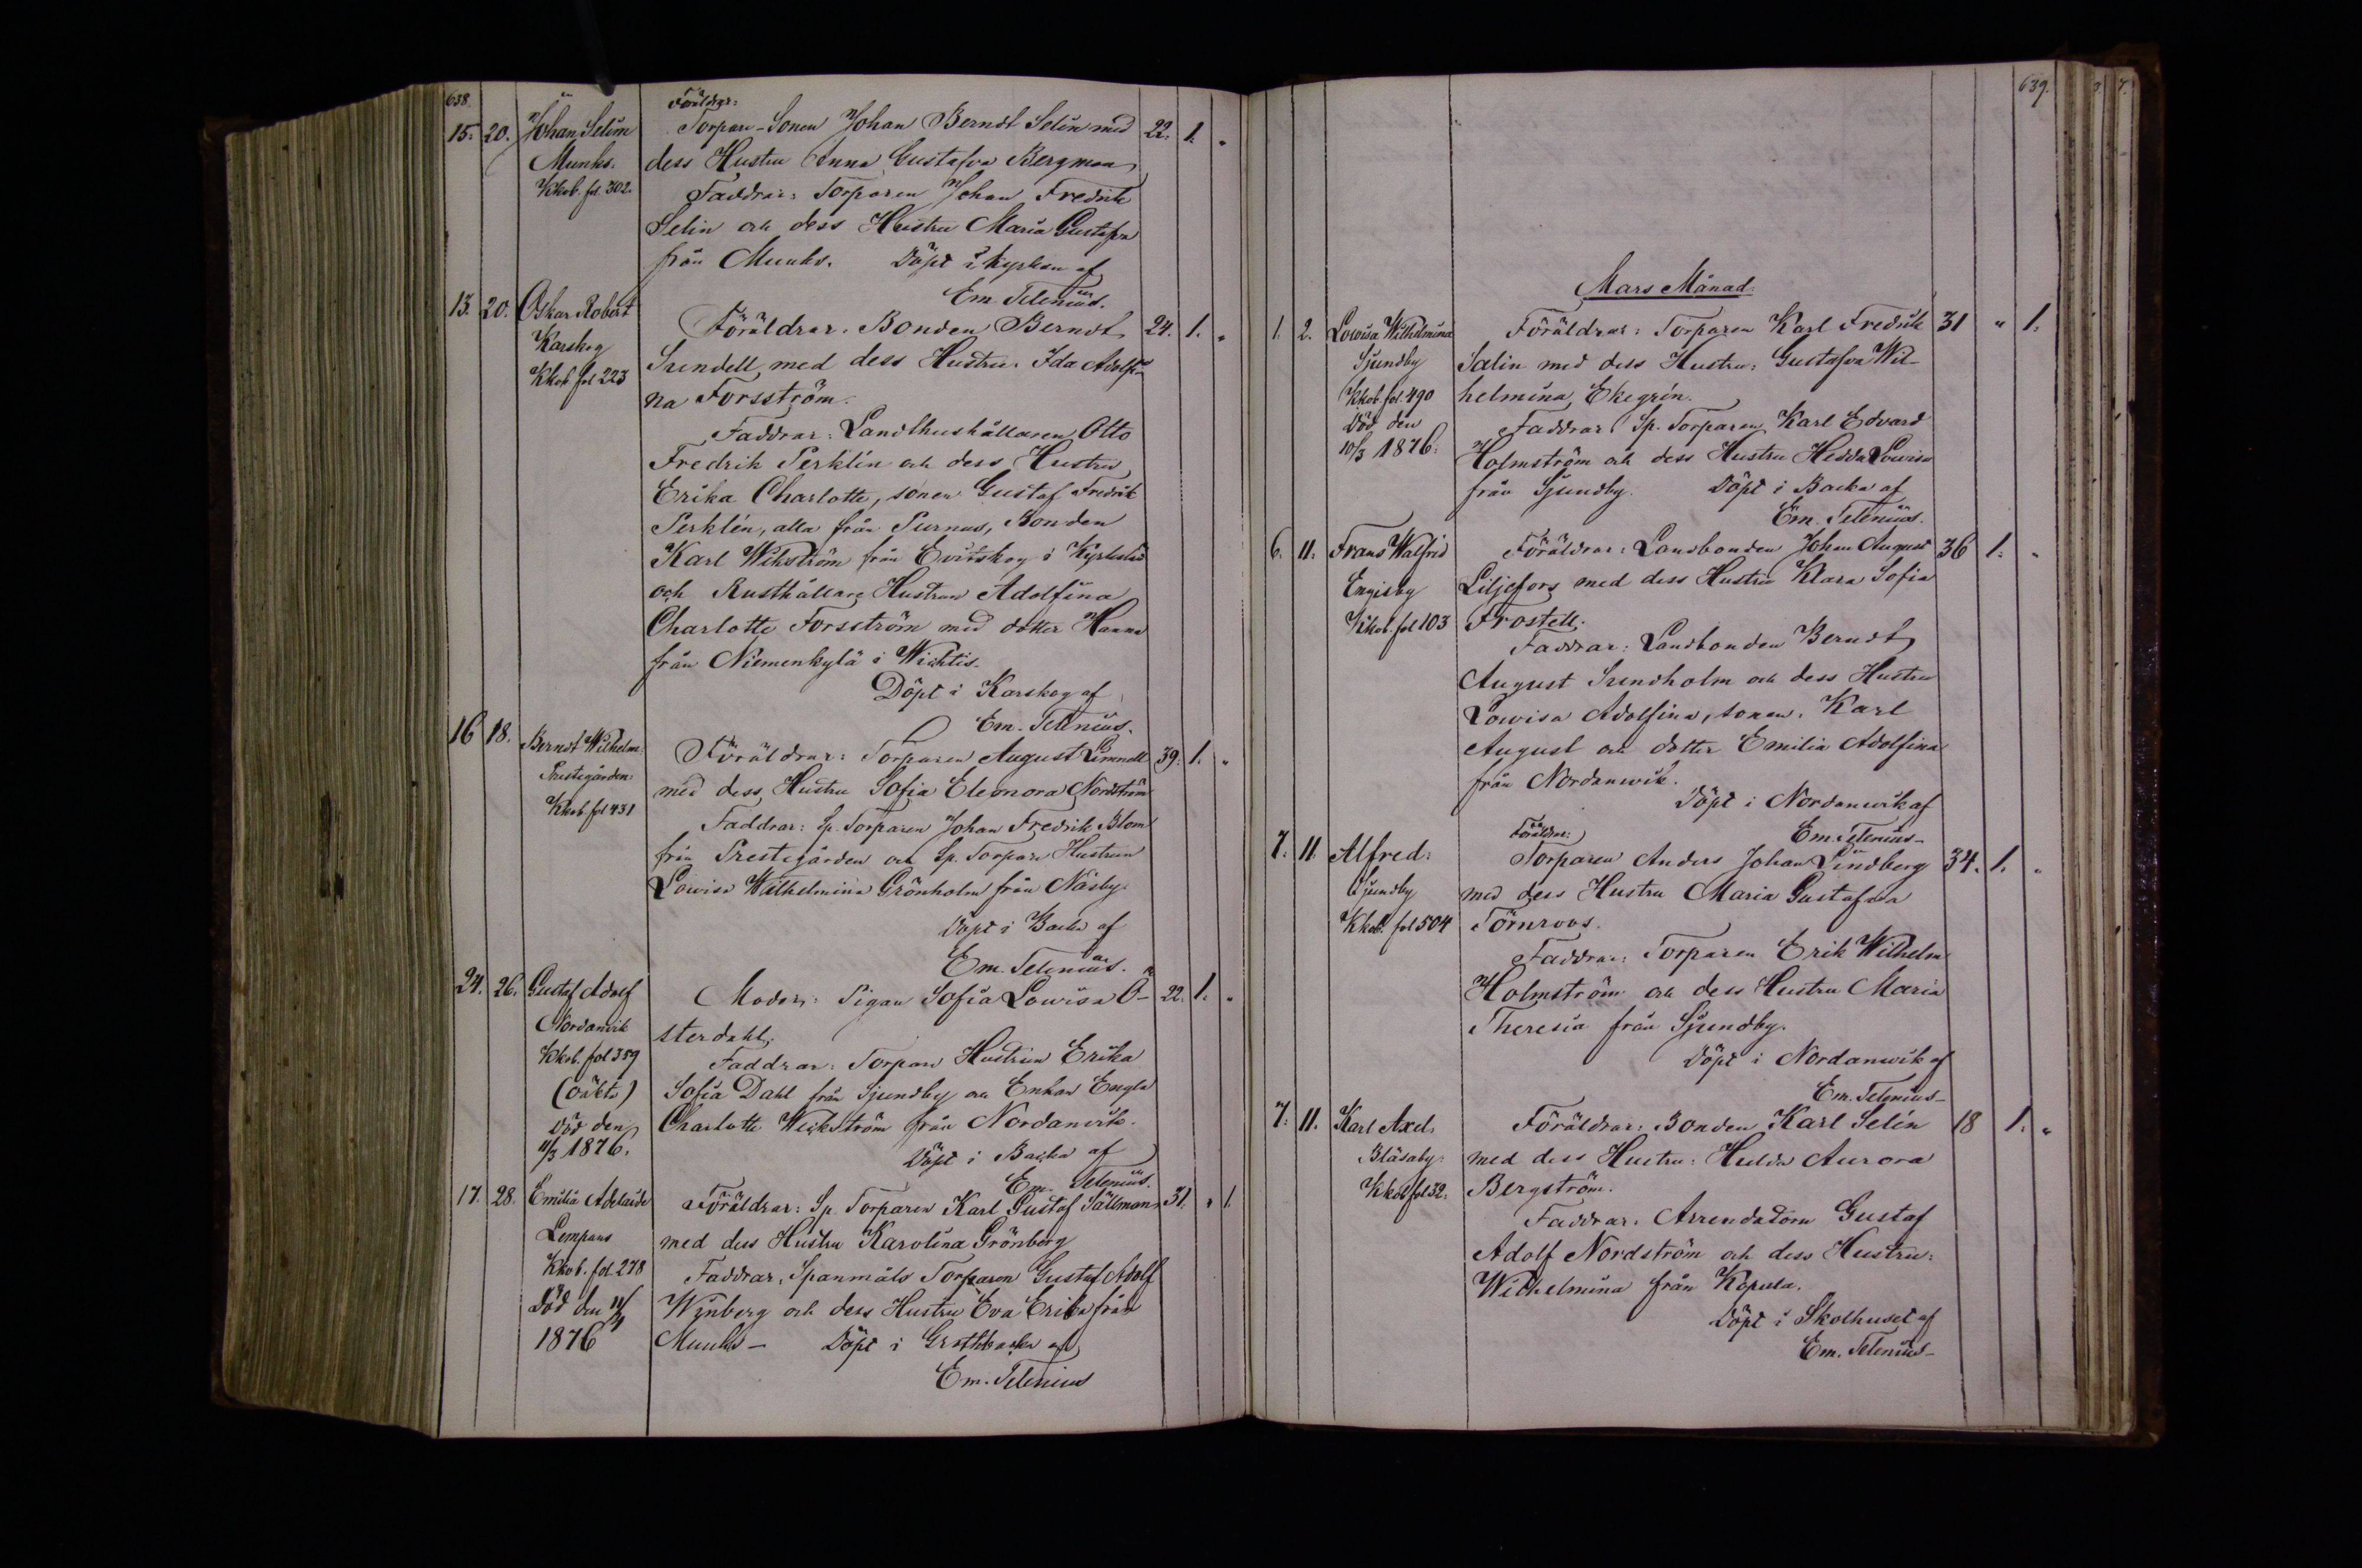 638.
Föräldrar:
15. 20. Johan Selim Torpare-Sonen Johan Berndt Selin med 22. 1. "
Munks. dess Hustru Anna Gustafva Bergman
Kkob. fol. 302. Faddrar: Torparen Johan Fredrik
Selin och dess Hustru Maria Gustafva
från Munks. Döpt i kyrkan af
Em. Telenius.
13. 20. Oskar Robert Föräldrar. Bonden Berndt 24. 1. "
Karskog Sundell med dess Hustru Ida Adolfi-
Kkob fol 223 na Forsström.
Faddrar: Landthushållaren Otto
Fredrik Perklin och dess Hustru
Erika Charlotta, sonen Gustaf Fredrik
Perklén, alla från Purnus, Bonden
Karl Wikström från Evitskog i Kyrkslätt
och Rusthållare Hustrun Adolfina
Charlotta Forsström med dotter Hanna
från Niemenkylä i Wichtis.
Döpt i Karskog af
Em. Telenius.
16 18. Berndt Wilhelm. Föräldrar: Torparen August Limnell 39. 1. "
Prestegården: med dess Hustru Sofia Eleonora Nordström
Kkob fol 431 Faddrar: Sp. Torparen Johan Fredrik Blom
från Prestegården och Sp. Torpare Hustrun
Lowisa Wilhelmina Grönholm från Näsby.
Döpt i Backa af
Em. Telenius.
24. 26. Gustaf Adolf Moder: Pigan Sofia Lowisa Ö- 22. 1. "
Nordanvik sterdahl.
Kkob. fol 359 Faddrar: Torpare Hustrun Erika
(oäkta) Sofia Dahl från Sjundby och Enkan Engla
Död den Charlotta Weckström från Nordanvik.
11/3 1876. Döpt i Backa af
Em. Telenius.
17. 28. Emilia Adelaide Föräldrar: Sp. Torparen Karl Gustaf Sällman 31. " 1.
Lempans med dess Hustru Karolina Grönberg
Kkob. fol. 278 Faddrar, Spanmåls Torparen Gustaf Adolf
Död den 11/4 Wynberg och dess Hustru Eva Erika från
1876 Munks - Döpt i Grothbacka af
Em. Telenius
639.
Mars Månad.
1. 2. Lowisa Wilhelmina Föräldrar: Torparen Karl Fredrik 31 " 1.
Sjundby Salin med dess Hustru: Gustafva Wil-
Kkob. fol. 490 helmina Ekegrén.
Död den Faddrar Sp. Torparen Karl Edvard
10/3 1876. Holmström och dess Hustru Hedda Lowisa
från Sjundby. Döpt i Backa af
Em. Telenius.
6. 11. Frans Walfrid Föräldrar: Landbonden Johan August 36 1. "
Engisby Liljefors med dess Hustru Klara Sofia
Kkob. fol 103 Frostell.
Faddrar: Landbonden Berndt
August Sundholm och dess Hustru
Lowisa Adolfina, sonen Karl
August och dotter Emilia Adolfina
från Nordanwik.
Döpt i Nordanwik af
Em. Telenius-
Föräldrar:
7. 11. Alfred: Torparen Anders Johan Lindberg 34. 1. "
Sjundby med dess Hustru Maria Gustafva
Kkob. fol 504 Törnroos.
Faddrar: Torparen Erik Wilhelm
Holmström och dess Hustru Maria
Theresia från Sjundby.
Döpt i Nordanwik af
Em. Telenius-
7. 11. Karl Axel. Föräldrar: Bonden Karl Selin 18 1. "
Bläsaby: med dess Hustru: Hulda Aurora
Kkob fol 32. Bergström.
Faddrar: Arrendatorn Gustaf
Adolf Nordström och dess Hustru:
Wilhelmina från Kopula.
Döpt i Skolhuset af
Em. Telenius-